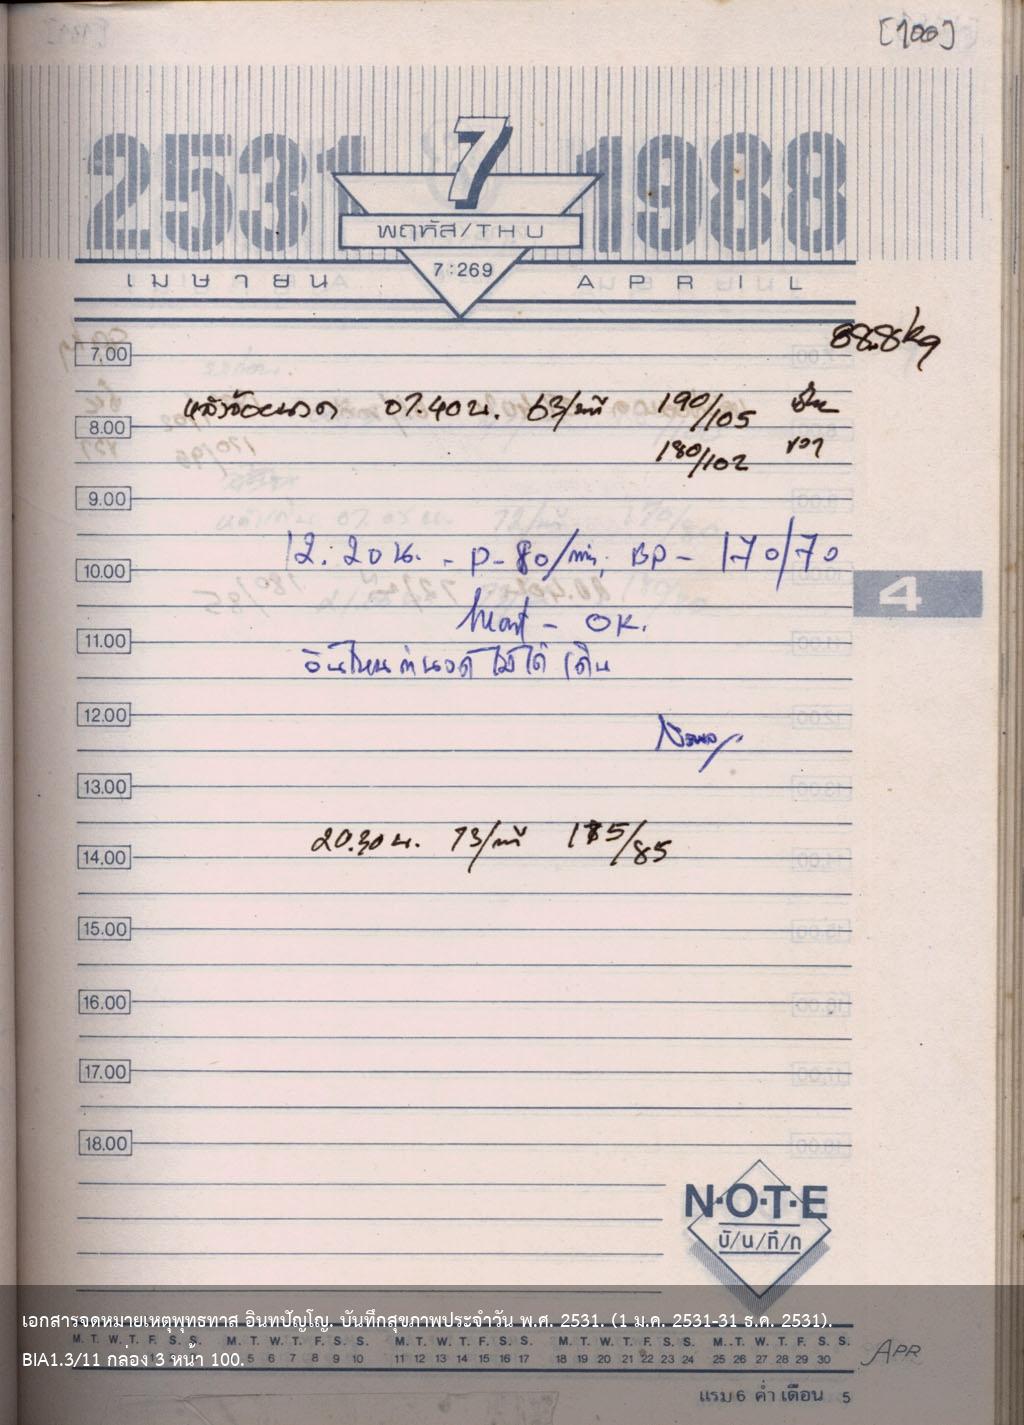 [100]
2531 7 1988
พฤหัส/THU
7:269
เมษายน APRIL
88.8kg
7.00
07.40 น. 63/นาที 190/105
8.00
180/102
9.00
12.20 น. - P- 80/min, BP - 170/70
10.00
4
Heart - OK.
11.00
12.00
13.00
20.30 น. 73/นาที 185/85
14.00
15.00
16.00
17.00
18.00
N·O·T·E
บั/น/ทึ/ก
เอกสารจดหมายเหตุพุทธทาส อินทปัญโญ. บันทึกสุขภาพประจำวัน พ.ศ. 2531. (1 ม.ค. 2531-31 ธ.ค. 2531).
M. T. W. T. F. S. S. M. T. W. T. F. S. S. M. T. W. T. F. S. S. M. T. W. T. F. S. S. M. T. W. T. F. S. S.
BIA1.3/11 กล่อง 3 หน้า 100.
5 6 7 8 9 10 11 12 13 14 15 16 17 18 19 20 21 22 23 24 25 26 27 28 29 30
APR
แรม 6 ค่ำ เดือน 5